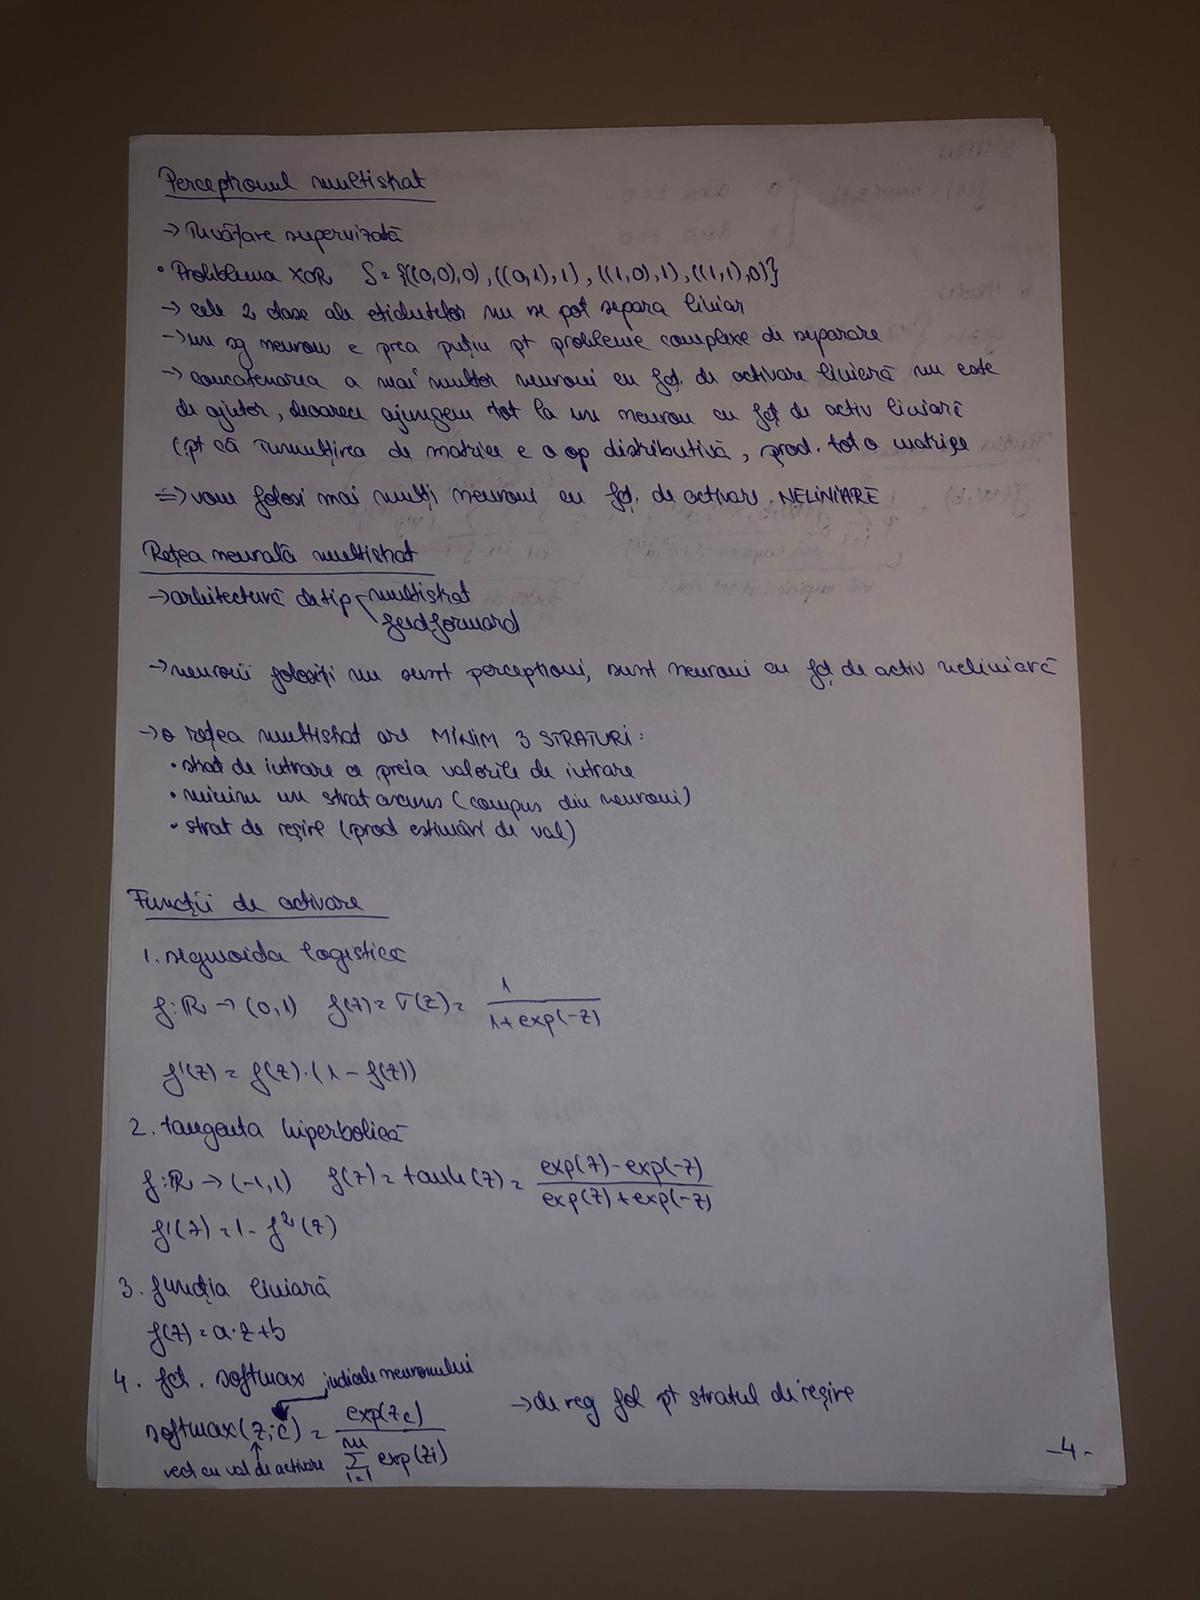 Perceptronul multistrat
→ învățare supervizată
• Problema XOR S = {((0,0),0), ((0,1),1), ((1,0),1), ((1,1),0)}
→ cele 2 clase ale etichetelor nu se pot separa liniar
→ un sg neuron e prea puțin pt probleme complexe de separare
→ concatenarea a mai multor neuroni cu fct. de activare liniară nu este
de ajutor, deoarece ajungem tot la un neuron cu fct de activ liniară
(pt că înmulțirea de matrice e o op distributivă, prod. tot o matrice
=> vom folosi mai mulți neuroni cu fct. de activare NELINIARE
Rețea neurală multistrat
→ arhitectură de tip multistrat
feedforward
→ neuronii folosiți nu sunt perceptroni, sunt neuroni cu fct de activ neliniară
→ o rețea multistrat are MINIM 3 STRATURI:
• strat de intrare ce preia valorile de intrare
• minim un strat ascuns (compus din neuroni)
• strat de ieșire (prod estimări de val)
Funcții de activare
1. sigmoida logistică
f: ℝ → (0,1) f(z) = σ(z) = 1 / (1 + exp(-z))
f'(z) = f(z)·(1 - f(z))
2. tangenta hiperbolică
f: ℝ → (-1,1) f(z) = tanh(z) = (exp(z) - exp(-z)) / (exp(z) + exp(-z))
f'(z) = 1 - f²(z)
3. funcția liniară
f(z) = a·z + b
4. fct. softmax indicele neuronului
softmax(z;c) = exp(zc) / Σ i=1 m exp(zi) → de reg fol pt stratul de ieșire
vect cu val de activare
-4-